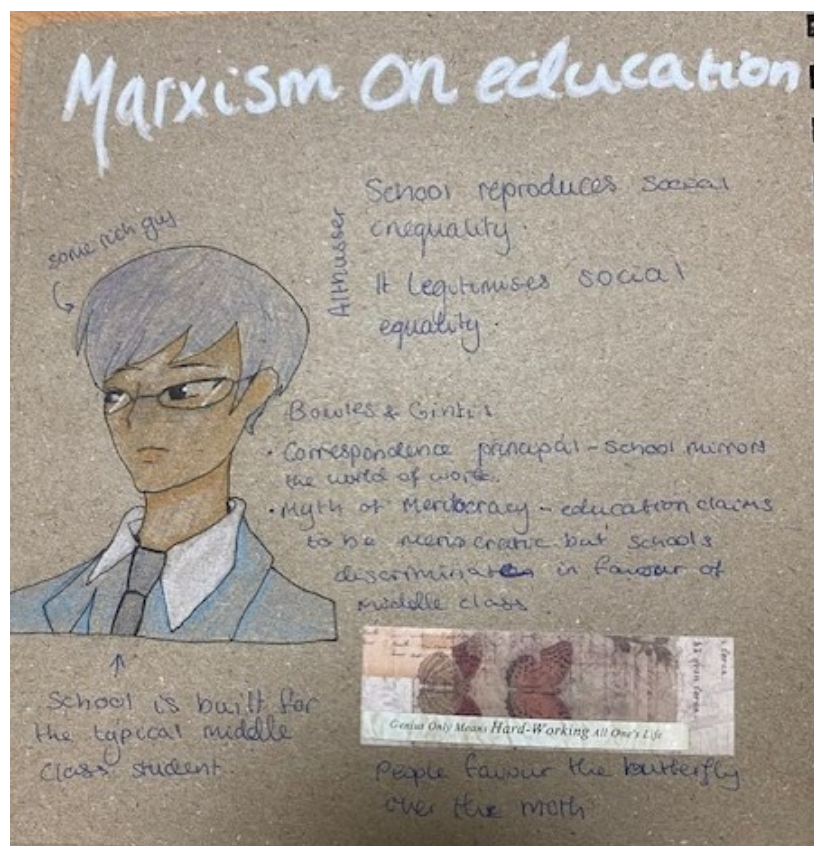 Marxism on education
some rich guy
Althusser
School reproduces social
inequality.
It legitimises social
equality.
Bowles & Gintis
• Correspondence principal - School mirrors
the world of work.
• Myth of Meritocracy - education claims
to be meritocratic but schools
discriminates in favour of
middle class.
School is built for
the typical middle
class student.
Genius Only Means Hard-Working All One's Life
People favour the butterfly
over the moth